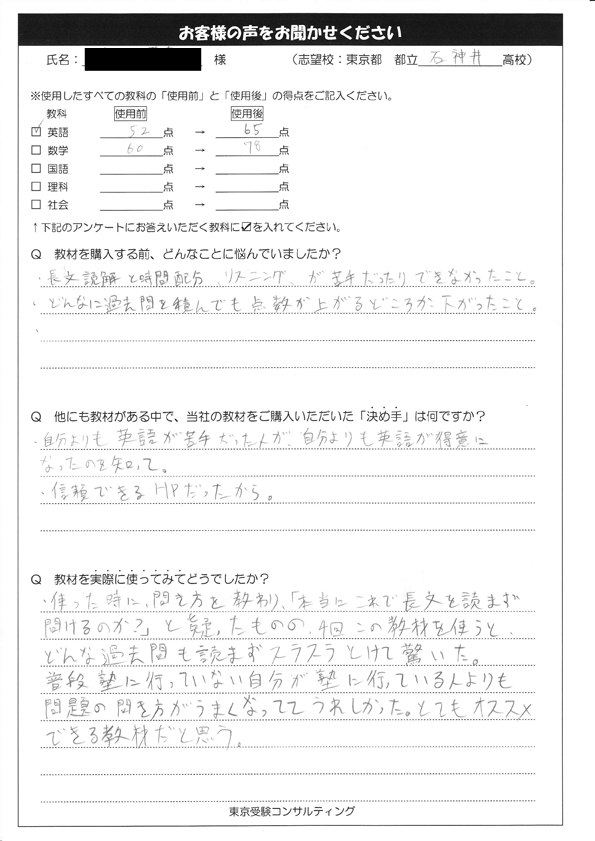 お客様の声をお聞かせください
氏名： 様 （志望校：東京都 都立 石神井 高校）
※使用したすべての教科の「使用前」と「使用後」の得点をご記入ください。
教科 使用前 使用後
☑ 英語 52 点 → 65 点
□ 数学 60 点 → 78 点
□ 国語 点 → 点
□ 理科 点 → 点
□ 社会 点 → 点
↑下記のアンケートにお答えいただく教科に☑を入れてください。
Q 教材を購入する前、どんなことに悩んでいましたか？
・長文読解と時間配分、リスニング、が苦手だったりできなかったこと。
・どんなに過去問を積んでも点数が上がるどころか下がったこと。
Q 他にも教材がある中で、当社の教材をご購入いただいた「決め手」は何ですか？
・自分よりも英語が苦手だった人が、自分よりも英語が得意に
なったのを知って。
・信頼できるHPだったから。
Q 教材を実際に使ってみてどうでしたか？
・使った時に、問き方を教わり、「本当にこれで長文を読まず
問けるのか？」と疑ったものの、4回この教材を使うと、
どんな過去問も読まずスラスラとけて驚いた。
普段塾に行っていない自分が塾に行っている人よりも
問題の問き方がうまくなっててうれしかった。とてもオススメ
できる教材だと思う。
東京受験コンサルティング